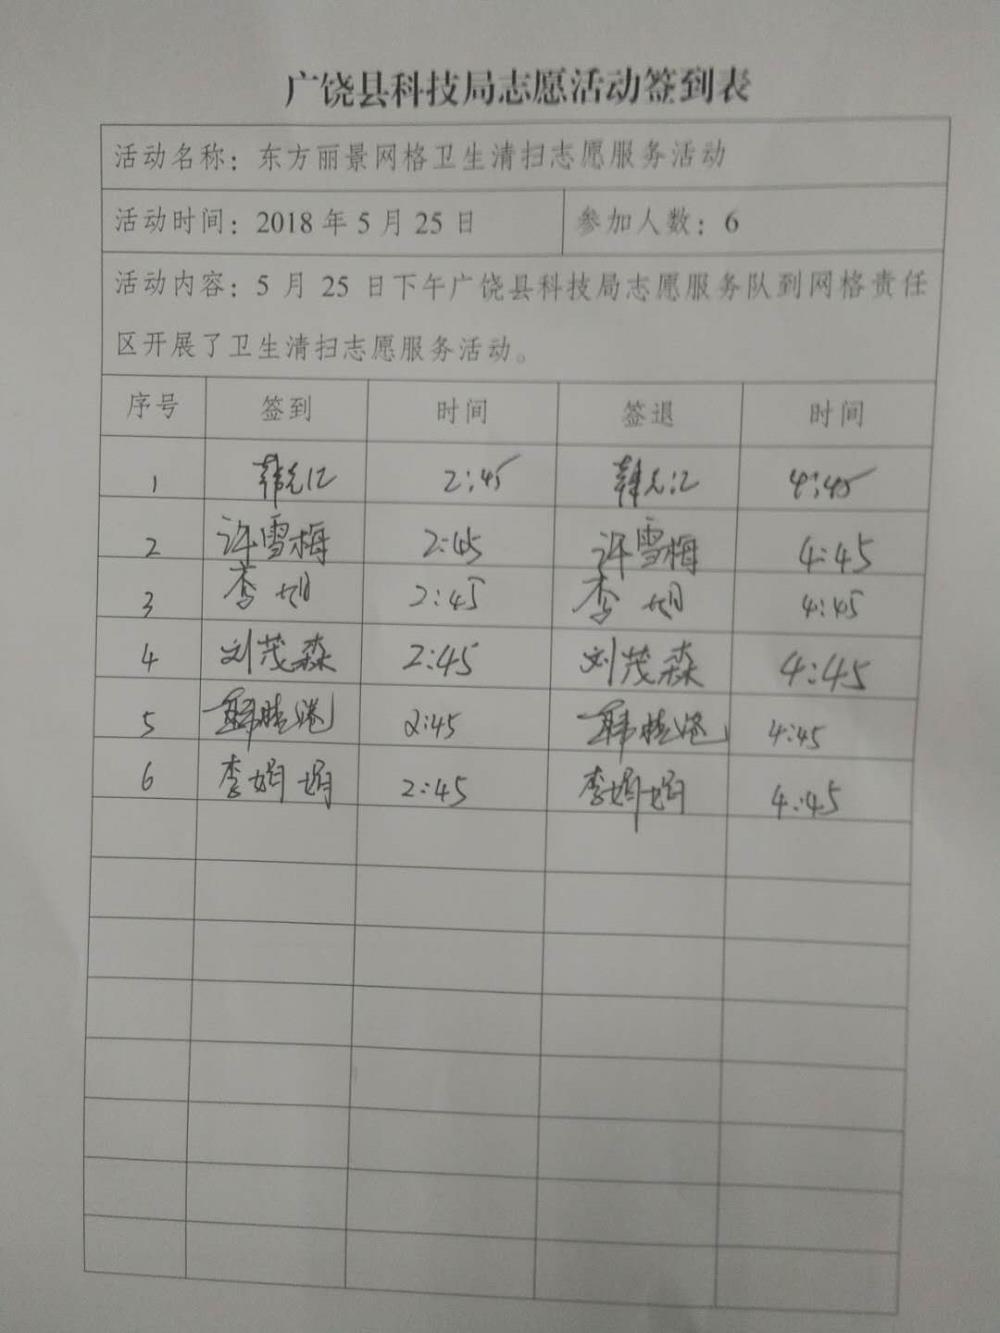 广饶县科技局志愿活动签到表
活动名称：东方丽景网格卫生清扫志愿服务活动
活动时间：2018 年 5 月 25 日 参加人数：6
活动内容：5 月 25 日下午广饶县科技局志愿服务队到网格责任
区开展了卫生清扫志愿服务活动。
序号 签到 时间 签退 时间
1 2:45 4:45
2 许雪梅 2:45 许雪梅 4:45
3 李 2:45 李 4:45
4 刘茂森 2:45 刘茂森 4:45
5 韩晓 2:45 韩晓 4:45
6 李娟娟 2:45 李娟娟 4:45